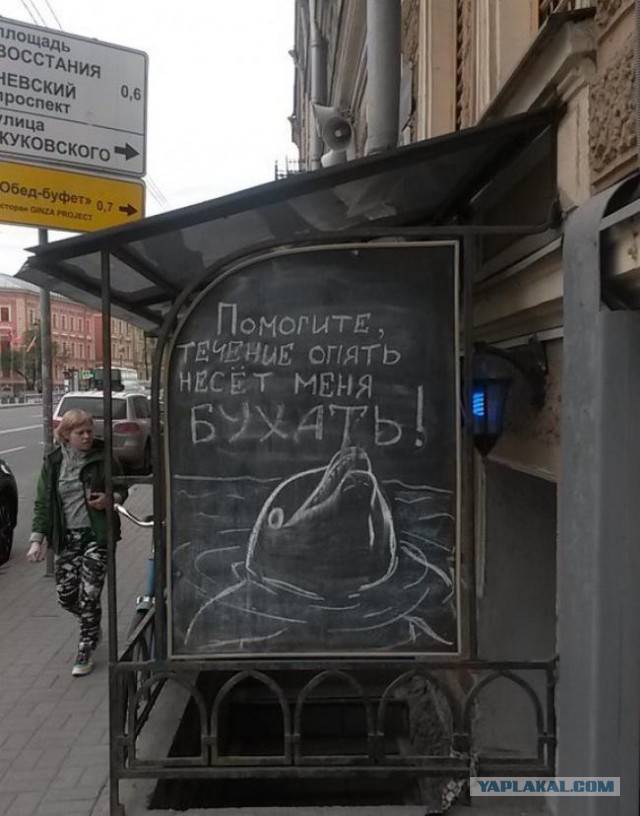 площадь
ВОССТАНИЯ
НЕВСКИЙ 0,6
проспект
улица
ЖУКОВСКОГО
"Обед-буфет" 0,7
ресторан GINZA PROJECT
Помогите,
течение опять
несёт меня
БУХАТЬ!
YAPLAKAL.COM